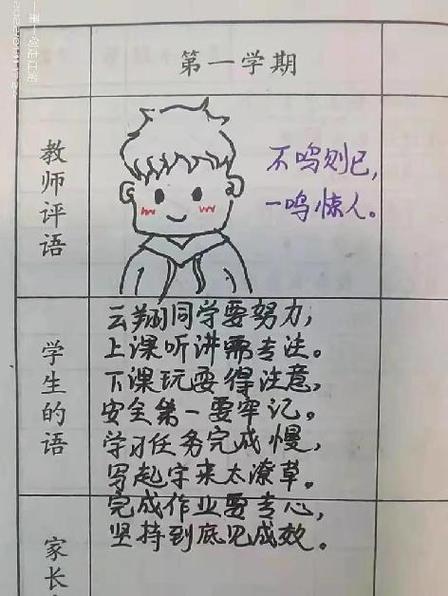 第一学期
教师评语
不鸣则已，
一鸣惊人。
学生的话
云翔同学要努力，
上课听讲需专注。
下课玩耍得注意，
安全第一要牢记。
学习任务完成慢，
写起字来太潦草。
完成作业要专心，
坚持到底见成效。
家长